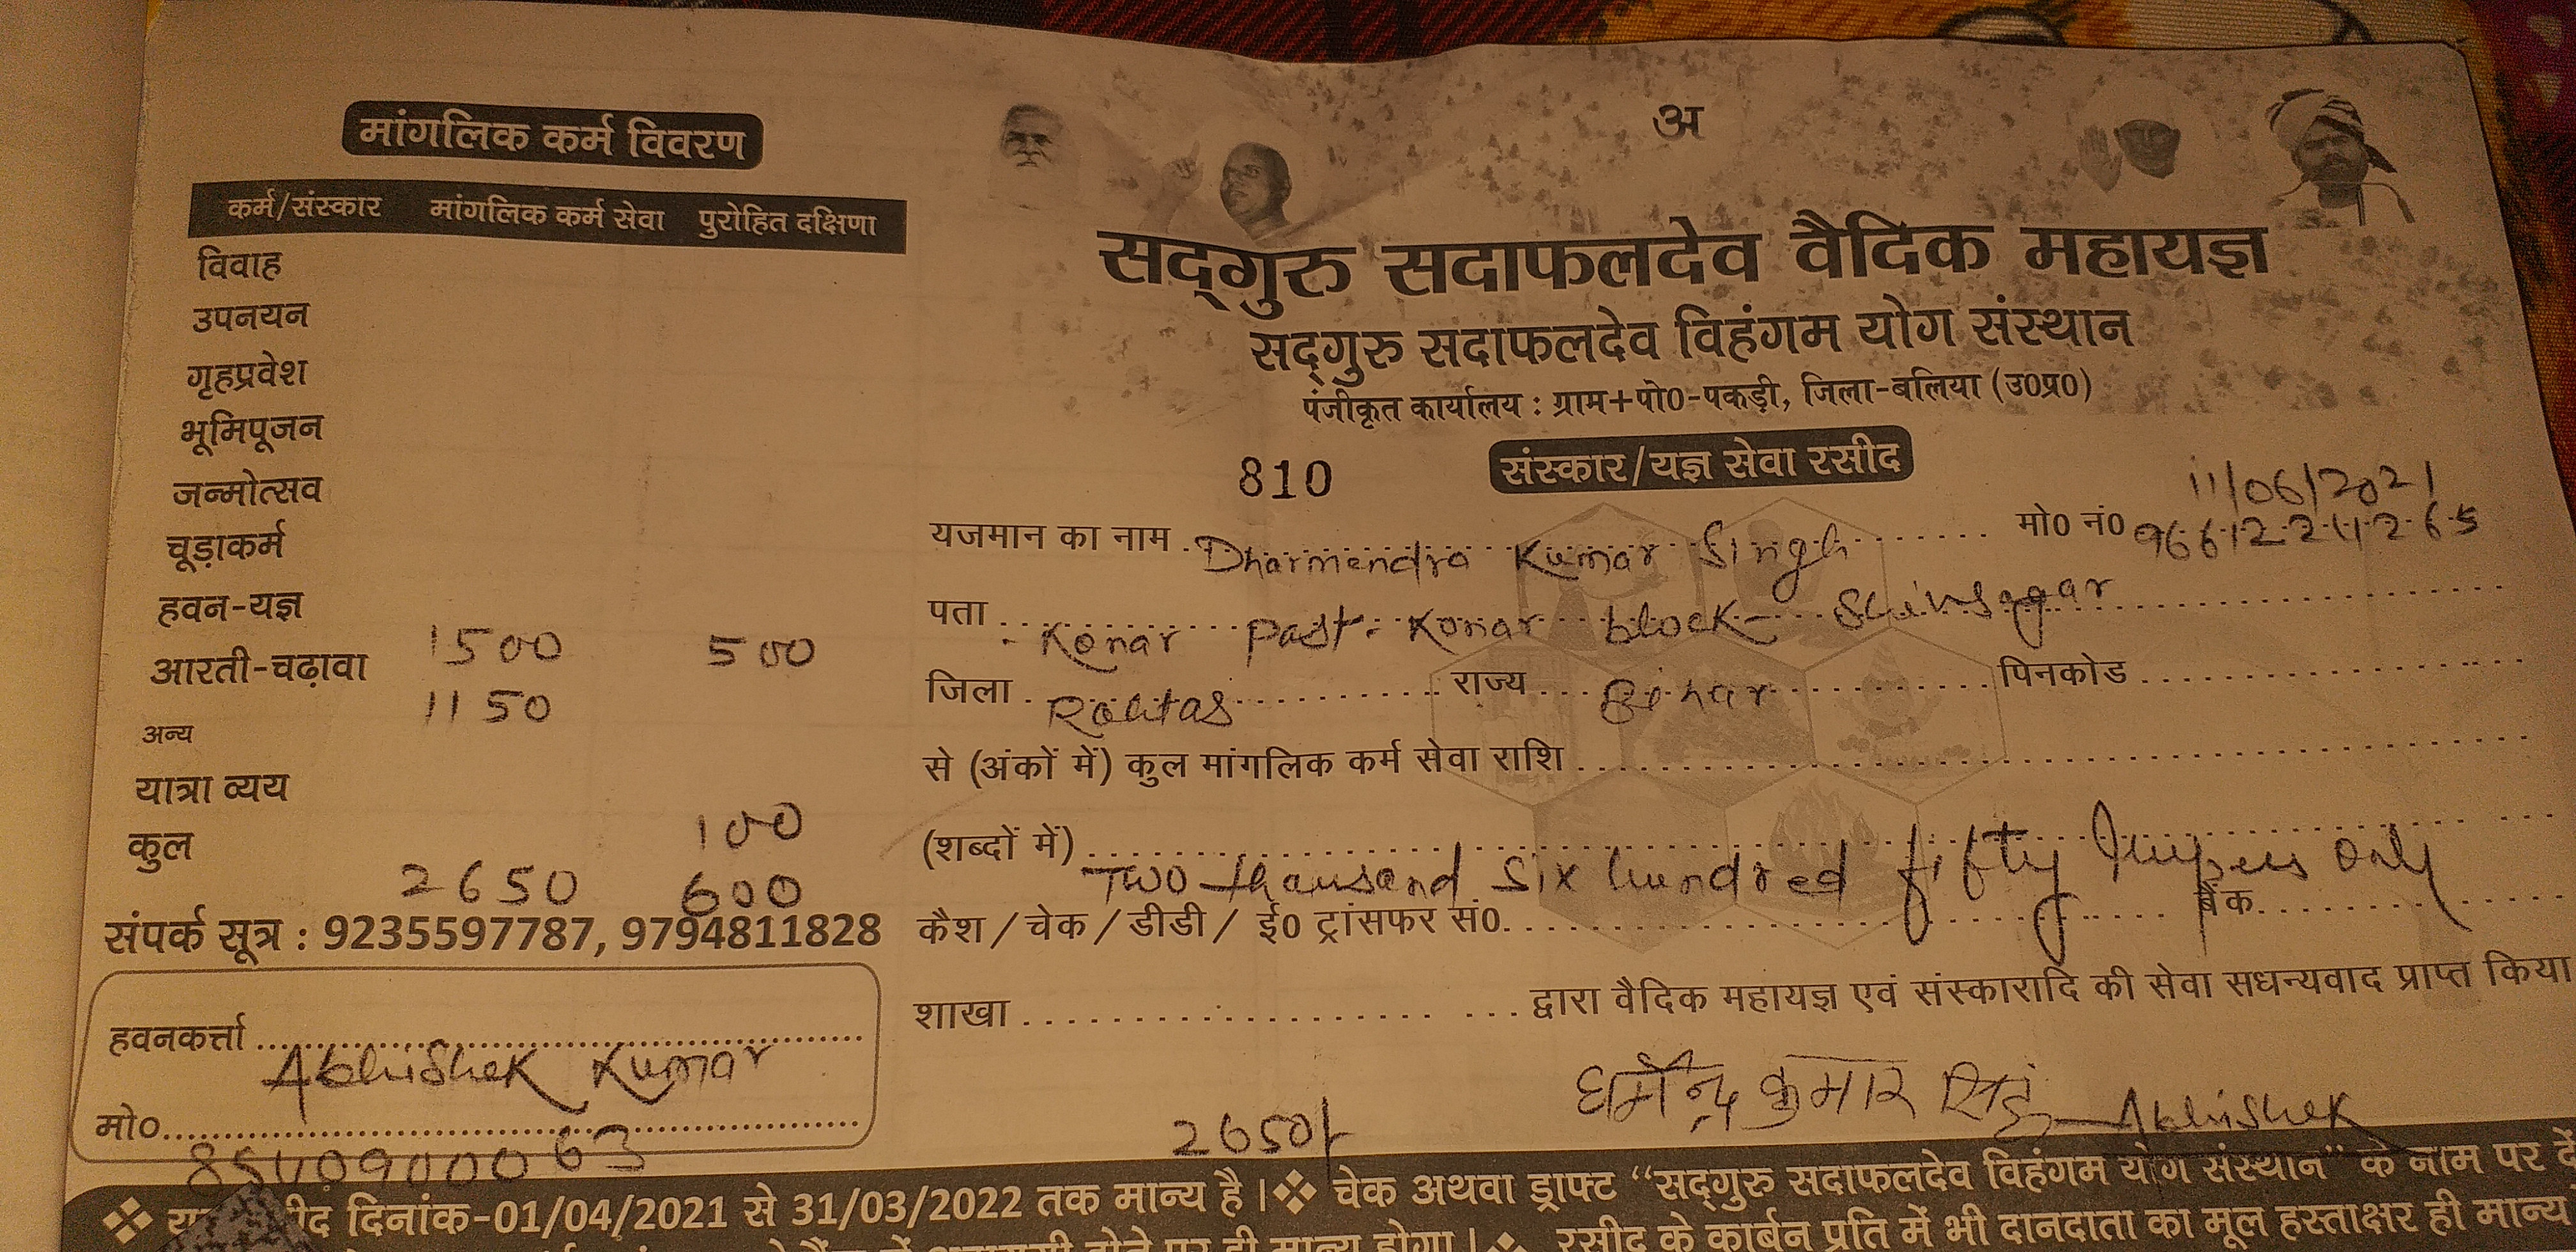 मांगलिक कर्म विवरण
कर्म/संस्कार मांगलिक कर्म सेवा पुरोहित दक्षिणा
विवाह
उपनयन
गृहप्रवेश
भूमिपूजन
जन्मोत्सव
चूड़ाकर्म
हवन-यज्ञ
1500 500
आरती-चढ़ावा
1150
अन्य
यात्रा व्यय
100
कुल
2650 600
संपर्क सूत्र : 9235597787, 9794811828
हवनकर्त्ता
Abhishek Kumar
मो०
अ
सद्गुरु सदाफलदेव वैदिक महायज्ञ
सद्गुरु सदाफलदेव विहंगम योग संस्थान
पंजीकृत कार्यालय : ग्राम+पो0-पकड़ी, जिला-बलिया (उ0प्र0)
810 संस्कार/यज्ञ सेवा रसीद
11/06/2021
यजमान का नाम Dharmendra Kumar Singh मो0 नं0
पता - Konar Post- Konar block- Shivsagar
जिला Rohtas राज्य Bihar पिनकोड
से (अंकों में) कुल मांगलिक कर्म सेवा राशि
(शब्दों में) Two thausand six hundred fifty only
कैश / चेक / डीडी / ई0 ट्रांसफर सं0. बैंक
शाखा द्वारा वैदिक महायज्ञ एवं संस्कारादि की सेवा सधन्यवाद प्राप्त किया
धर्मेन्द्र कुमार सिंह Abhishek
2650/-
❖ दिनांक-01/04/2021 से 31/03/2022 तक मान्य है। ❖ चेक अथवा ड्राफ्ट “सद्गुरु सदाफलदेव विहंगम योग संस्थान” के नाम पर
❖ रसीद के कार्बन प्रति में भी दानदाता का मूल हस्ताक्षर ही मान्य